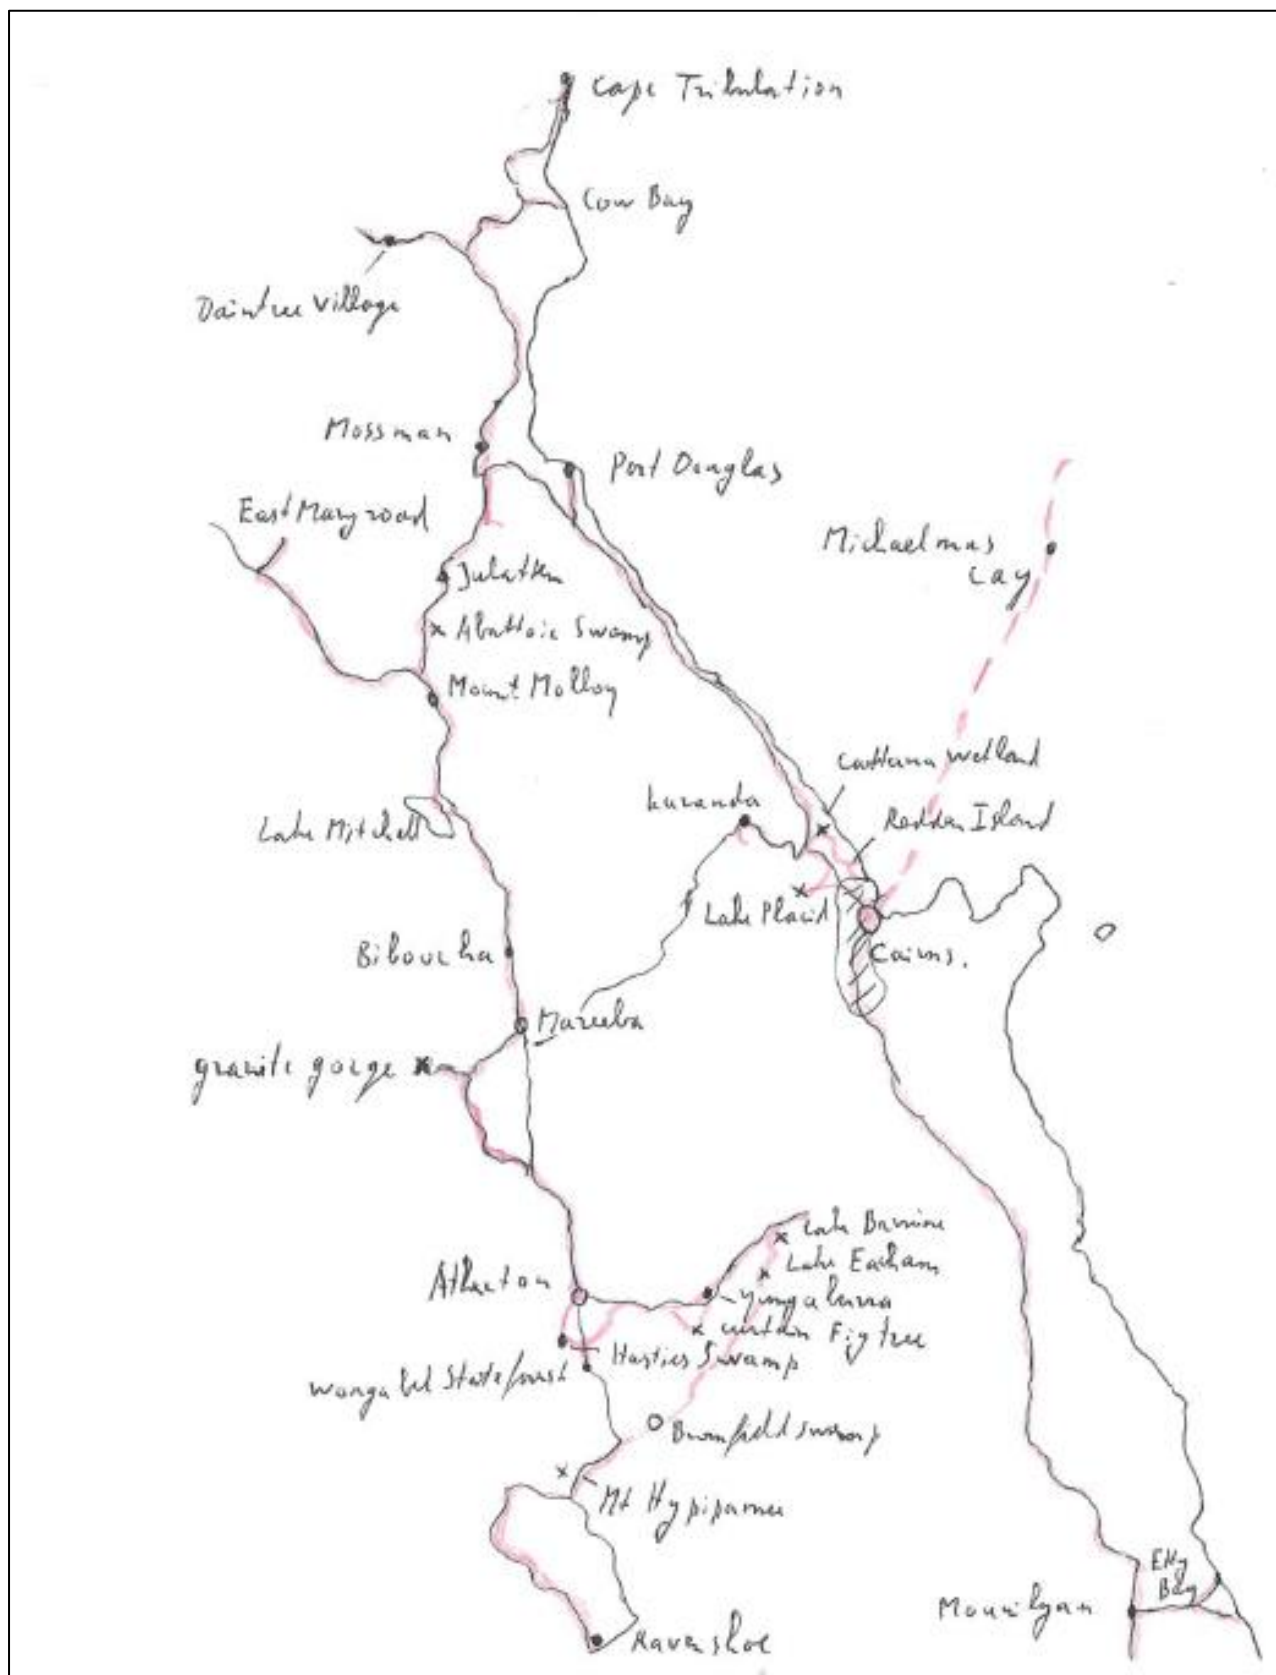 Cape Tribulation
Cow Bay
Daintree Village
Mossman
Port Douglas
East Mary road
Michaelmas
Cay
Julatten
Abattoir Swamp
Mount Molloy
Cattana Wetland
Kuranda
Redden Island
Lake Mitchell
Lake Placid
Cairns.
Biboucha
Mareeba
granite gorge
Lake Barrine
Lake Eacham
Atherton
Yungaburra
curtain Fig tree
Hasties Swamp
Wongabel State forest
Bromfield swamp
Mt Hypipamee
Etty
Bay
Mourilyan
Ravenshoe